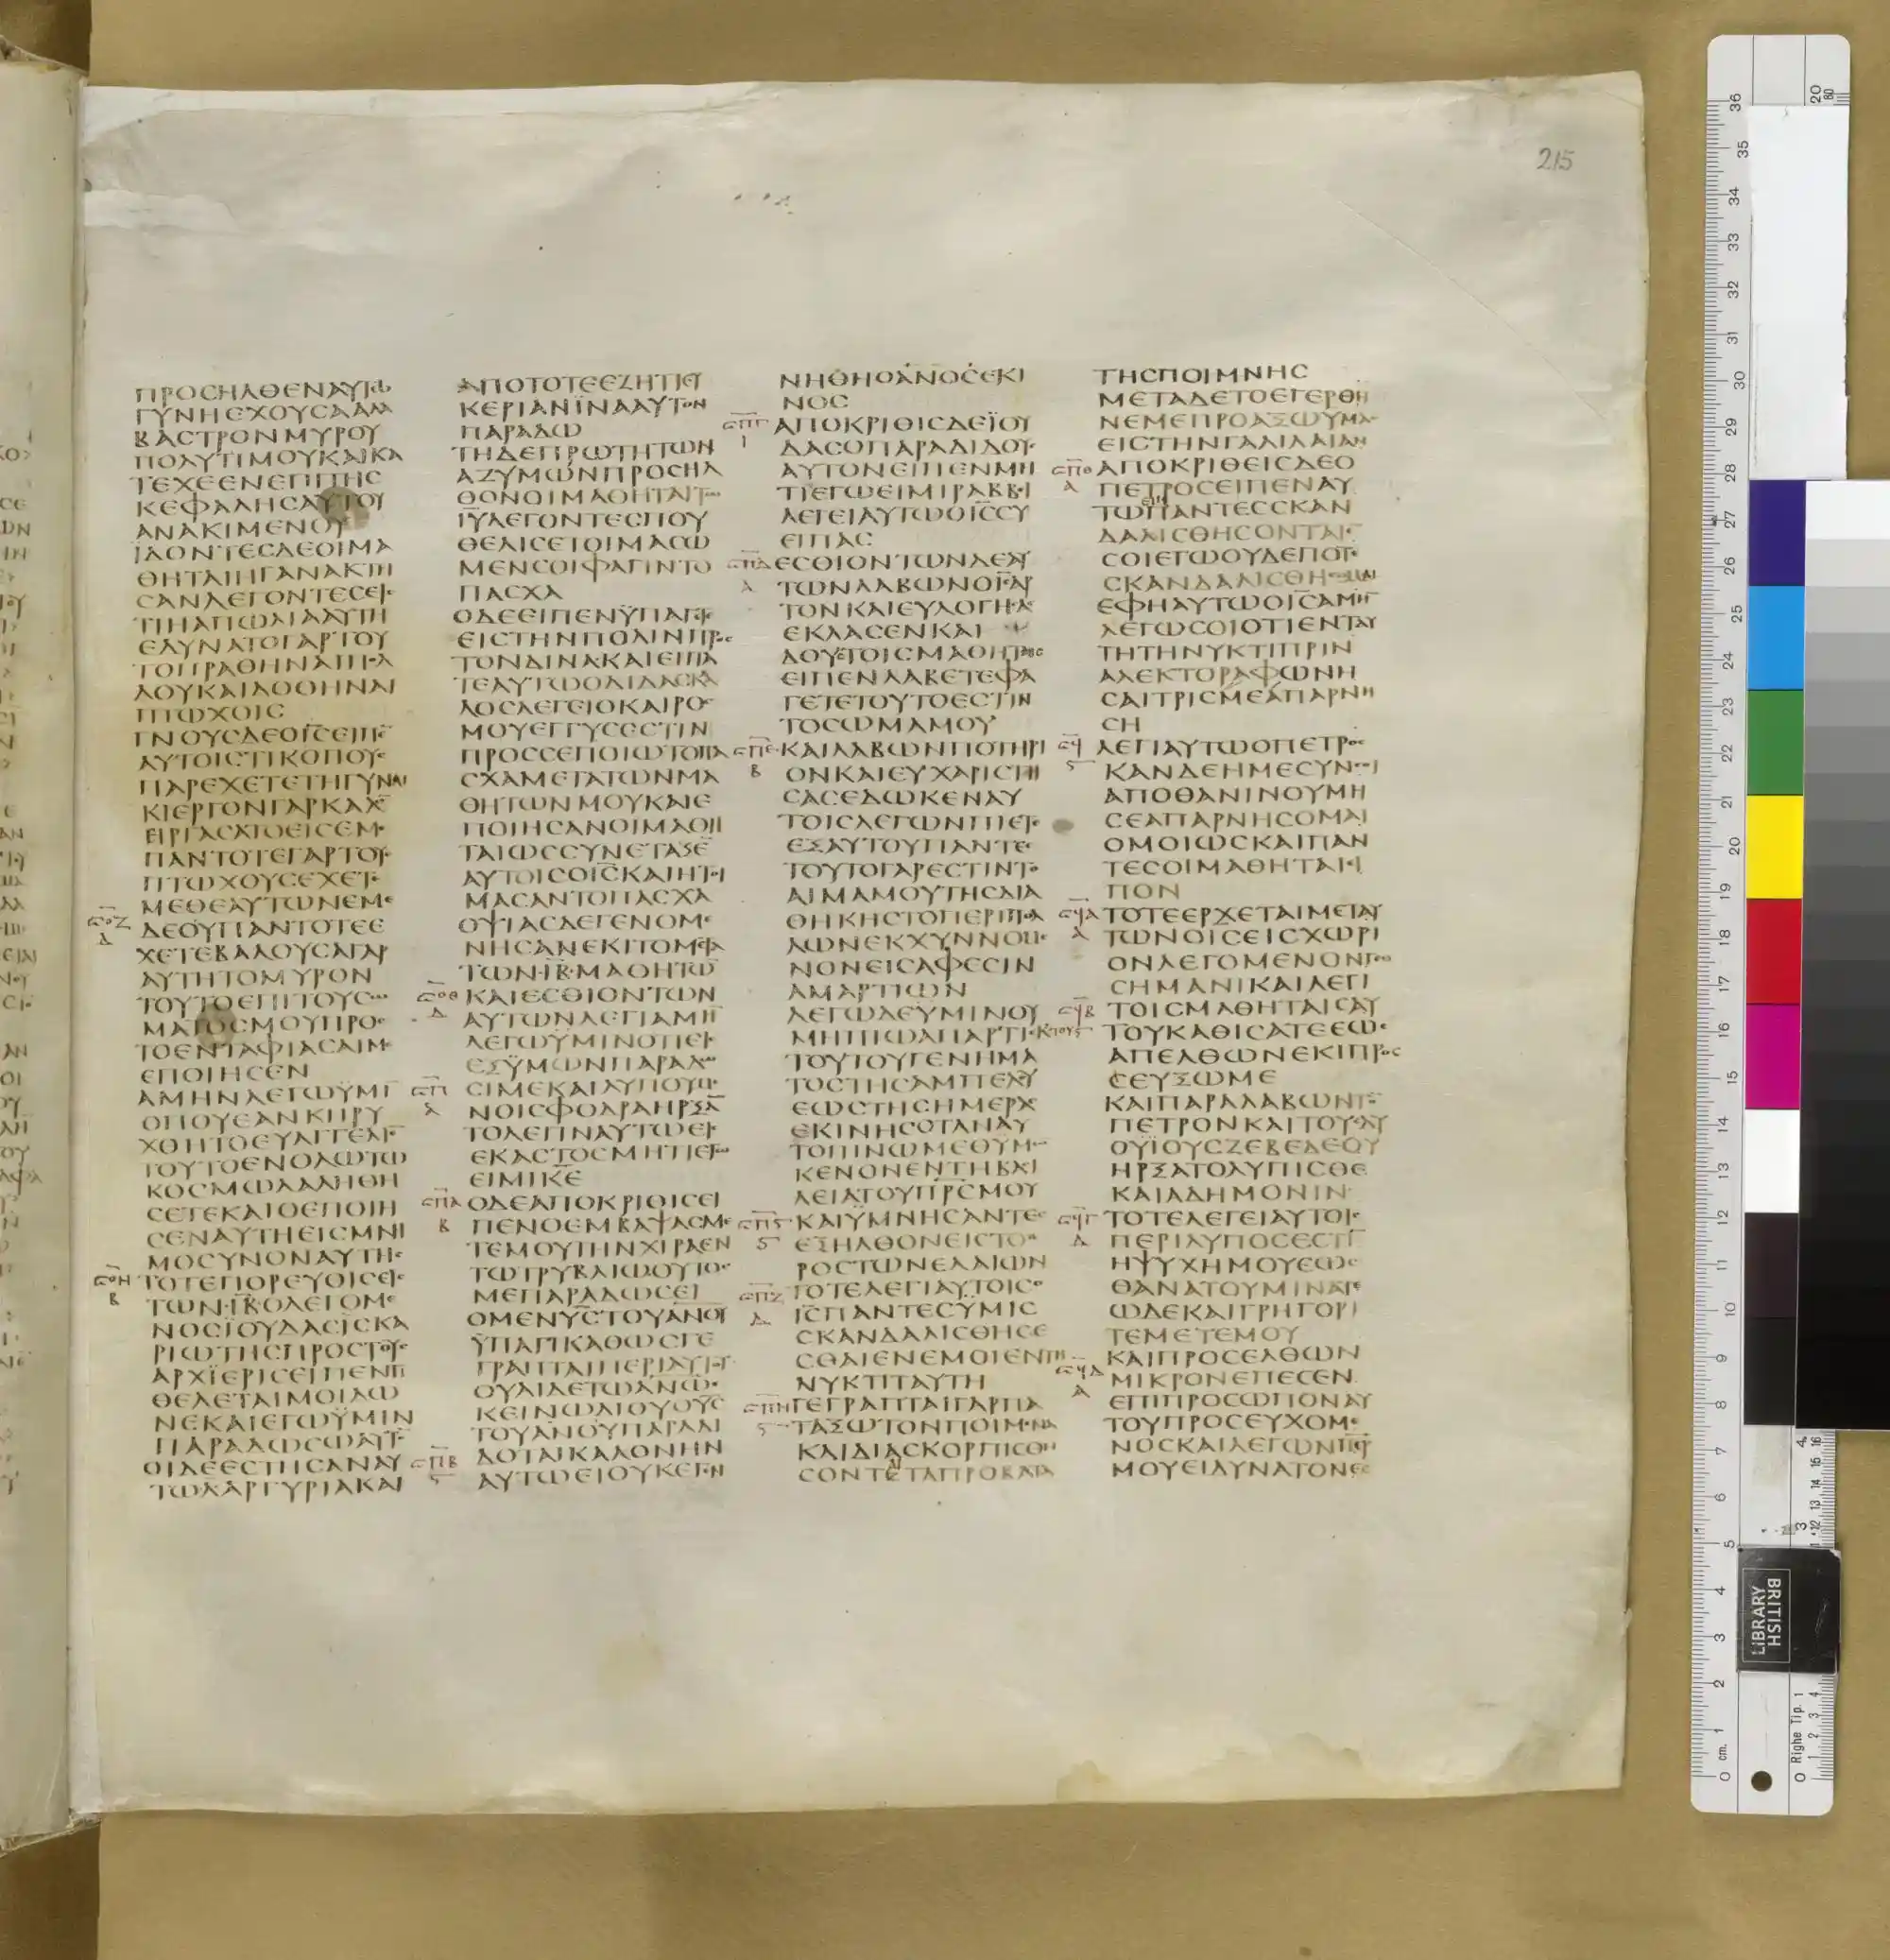 215
ΠΡΟΣΗΛΘΕΝΑΥΤΩ
ΓΥΝΗΕΧΟΥΣΑΑΛΑ
ΒΑΣΤΡΟΝΜΥΡΟΥ
ΠΟΛΥΤΙΜΟΥΚΑΙΚΑ
ΤΕΧΕΕΝΕΠΙΤΗΣ
ΚΕΦΑΛΗΣΑΥΤΟΥ
ΑΝΑΚΙΜΕΝΟΥ
ΪΔΟΝΤΕΣΔΕΟΙΜΑ
ΘΗΤΑΙΗΓΑΝΑΚΤΗ
ΣΑΝΛΕΓΟΝΤΕΣΕΙΣ
ΤΙΗΑΠΩΛΙΑΑΥΤΗ
ΕΔΥΝΑΤΟΓΑΡΤΟΥ
ΤΟΠΡΑΘΗΝΑΙΠΟΛ
ΛΟΥΚΑΙΔΟΘΗΝΑΙ
ΠΤΩΧΟΙΣ
ΓΝΟΥΣΔΕΟΙ̅Σ̅ΕΙΠΕ̅
ΑΥΤΟΙΣΤΙΚΟΠΟΥΣ
ΠΑΡΕΧΕΤΕΤΗΓΥΝΑΙ
ΚΙΕΡΓΟΝΓΑΡΚΑΛΟ̅
ΕΙΡΓΑΣΑΤΟΕΙΣΕΜΕ
ΠΑΝΤΟΤΕΓΑΡΤΟΥΣ
ΠΤΩΧΟΥΣΕΧΕΤΕ
ΜΕΘΕΑΥΤΩΝΕΜΕ
ΣΟΖ Δ ΔΕΟΥΠΑΝΤΟΤΕΕ
ΧΕΤΕΒΑΛΟΥΣΑΓΑΡ
ΑΥΤΗΤΟΜΥΡΟΝ
ΤΟΥΤΟΕΠΙΤΟΥΣΩ
ΜΑΤΟΣΜΟΥΠΡΟΣ
ΤΟΕΝΤΑΦΙΑΣΑΙΜΕ
ΕΠΟΙΗΣΕΝ
ΑΜΗΝΛΕΓΩΫΜΙ̅
ΟΠΟΥΕΑΝΚΗΡΥ
ΧΘΗΤΟΕΥΑΓΓΕΛΙΟ̅
ΤΟΥΤΟΕΝΟΛΩΤΩ
ΚΟΣΜΩΛΑΛΗΘΗ
ΣΕΤΕΚΑΙΟΕΠΟΙΗ
ΣΕΝΑΥΤΗΕΙΣΜΝΗ
ΜΟΣΥΝΟΝΑΥΤΗΣ
ΣΟΗ Β ΤΟΤΕΠΟΡΕΥΘΙΣΕΙΣ
ΤΩΝ·ΙΒ̅ΟΛΕΓΟΜΕ
ΝΟΣΪΟΥΔΑΣΙΣΚΑ
ΡΙΩΤΗΣΠΡΟΣΤΟΥΣ
ΑΡΧΪΕΡΙΣΕΙΠΕΝΤΙ
ΘΕΛΕΤΑΙΜΟΙΔΩ
ΝΕΚΑΙΕΓΩΫΜΙΝ
ΠΑΡΑΔΩΣΩΑΥΤΟ̅
ΟΙΔΕΕΣΤΗΣΑΝΑΥ
ΤΩΛΑΡΓΥΡΙΑΚΑΙ
ΑΠΟΤΟΤΕΕΖΗΤΙΕΥ
ΚΕΡΙΑΝΪΝΑΑΥΤΟΝ
ΠΑΡΑΔΩ
ΤΗΔΕΠΡΩΤΗΤΩΝ
ΑΖΥΜΩΝΠΡΟΣΗΛ
ΘΟΝΟΙΜΑΘΗΤΑΙΤΩ
Ι̅Υ̅ΛΕΓΟΝΤΕΣΠΟΥ
ΘΕΛΙΣΕΤΟΙΜΑΣΩ
ΜΕΝΣΟΙΦΑΓΙΝΤΟ
ΠΑΣΧΑ
ΟΔΕΕΙΠΕΝΫΠΑΓΕΤΕ
ΕΙΣΤΗΝΠΟΛΙΝΠΡΟΣ
ΤΟΝΔΙΝΑΚΑΙΕΙΠΑ
ΤΕΑΥΤΩΟΔΙΔΑΣΚΑ
ΛΟΣΛΕΓΕΙΟΚΑΙΡΟΣ
ΜΟΥΕΓΓΥΣΕΣΤΙΝ
ΠΡΟΣΣΕΠΟΙΩΤΟΠΑ
ΣΧΑΜΕΤΑΤΩΝΜΑ
ΘΗΤΩΝΜΟΥΚΑΙΕ
ΠΟΙΗΣΑΝΟΙΜΑΘΗ
ΤΑΙΩΣΣΥΝΕΤΑΞΕ̅
ΑΥΤΟΙΣΟΙ̅Σ̅ΚΑΙΗΤΟΙ
ΜΑΣΑΝΤΟΠΑΣΧΑ
ΟΨΙΑΣΔΕΓΕΝΟΜΕ
ΝΗΣΑΝΕΚΙΤΟΜΕΤΑ
ΤΩΝ·ΙΒ̅·ΜΑΘΗΤΩ̅
ΣΟΘ Δ ΚΑΙΕΣΘΙΟΝΤΩΝ
ΑΥΤΩΝΛΕΓΙΑΜΗ̅
ΛΕΓΩΫΜΙΝΟΤΙΕΙΣ
ΕΞΫΜΩΝΠΑΡΑΔΩ
ΣΠ Α ΣΙΜΕΚΑΙΛΥΠΟΥΜΕ
ΝΟΙΣΦΟΔΡΑΗΡΞΑ̅
ΤΟΛΕΓΙΝΑΥΤΩΕΙΣ
ΕΚΑΣΤΟΣΜΗΤΙΕΓΩ
ΕΙΜΙΚ̅Ε̅
ΣΠΑ Β ΟΔΕΑΠΟΚΡΙΘΙΣΕΙ
ΠΕΝΟΕΜΒΑΨΑΣΜΕ
ΤΕΜΟΥΤΗΝΧΙΡΑΕΝ
ΤΩΤΡΥΒΛΙΩΟΥΤΟΣ
ΜΕΠΑΡΑΔΩΣΕΙ
ΟΜΕΝΥ̅Σ̅ΤΟΥΑ̅Ν̅Ο̅Υ̅
ΫΠΑΓΙΚΑΘΩΣΓΕ
ΓΡΑΠΤΑΙΠΕΡΙΑΥΤΟΥ
ΟΥΑΙΔΕΤΩΑ̅Ν̅Ω̅Ε
ΚΕΙΝΩΔΙΟΥΟΥ̅Σ̅
ΤΟΥΑ̅Ν̅Ο̅Υ̅ΠΑΡΑΔΙ
ΔΟΤΑΙΚΑΛΟΝΗΝ
ΣΠΒ Ϛ ΑΥΤΩΕΙΟΥΚΕΓΕΝ
ΝΗΘΗΟΑ̅Ν̅Ο̅Σ̅ΕΚΙ
ΝΟΣ
ΣΠΓ Ι ΑΠΟΚΡΙΘΙΣΔΕΪΟΥ
ΔΑΣΟΠΑΡΑΔΙΔΟΥΣ
ΑΥΤΟΝΕΙΠΕΝΜΗ
ΤΙΕΓΩΕΙΜΙΡΑΒΒΙ
ΛΕΓΕΙΑΥΤΩΟΙ̅Σ̅ΣΥ
ΕΙΠΑΣ
ΣΠΔ Α ΕΣΘΙΟΝΤΩΝΔΕΑΥ
ΤΩΝΛΑΒΩΝΟΙ̅Σ̅ΑΡ
ΤΟΝΚΑΙΕΥΛΟΓΗΣΑΣ
ΕΚΛΑΣΕΝΚΑΙ
ΔΟΥΣΤΟΙΣΜΑΘΗΤΑΙΣ
ΕΙΠΕΝΛΑΒΕΤΕΦΑ
ΓΕΤΕΤΟΥΤΟΕΣΤΙΝ
ΤΟΣΩΜΑΜΟΥ
ΣΠΕ Β ΚΑΙΛΑΒΩΝΠΟΤΗΡΙ
ΟΝΚΑΙΕΥΧΑΡΙΣΤΗ
ΣΑΣΕΔΩΚΕΝΑΥ
ΤΟΙΣΛΕΓΩΝΠΙΕΤΕ
ΕΞΑΥΤΟΥΠΑΝΤΕΣ
ΤΟΥΤΟΓΑΡΕΣΤΙΝΤΟ
ΑΙΜΑΜΟΥΤΗΣΔΙΑ
ΘΗΚΗΣΤΟΠΕΡΙΠΟΛ
ΛΩΝΕΚΧΥΝΝΟΜΕ
ΝΟΝΕΙΣΑΦΕΣΙΝ
ΑΜΑΡΤΙΩΝ
ΛΕΓΩΔΕΫΜΙΝΟΥ
ΜΗΠΙΩΑΠΑΡΤΙΕΚΤΟΥ
ΤΟΥΤΟΥΓΕΝΗΜΑ
ΤΟΣΤΗΣΑΜΠΕΛΟΥ
ΕΩΣΤΗΣΗΜΕΡΑΣ
ΕΚΙΝΗΣΟΤΑΝΑΥ
ΤΟΠΙΝΩΜΕΘΥΜΩ
ΚΕΝΟΝΕΝΤΗΒΑΣΙ
ΛΕΙΑΤΟΥΠ̅Ρ̅Σ̅ΜΟΥ
ΣΠϚ Ϛ ΚΑΙΫΜΝΗΣΑΝΤΕΣ
ΕΞΗΛΘΟΝΕΙΣΤΟΟ
ΡΟΣΤΩΝΕΛΑΙΩΝ
ΣΠΖ Δ ΤΟΤΕΛΕΓΙΑΥΤΟΙΣΟ
Ι̅Σ̅ΠΑΝΤΕΣΫΜΙΣ
ΣΚΑΝΔΑΛΙΣΘΗΣΕ
ΣΘΑΙΕΝΕΜΟΙΕΝΤΗ
ΝΥΚΤΙΤΑΥΤΗ
ΣΠΗ Ϛ ΓΕΓΡΑΠΤΑΙΓΑΡΠΑ
ΤΑΞΩΤΟΝΠΟΙΜΕΝΑ
ΚΑΙΔΙΑΣΚΟΡΠΙΣΘΗ
ΣΟΝΤΕΤΑΠΡΟΒΑΤΑ
ΤΗΣΠΟΙΜΝΗΣ
ΜΕΤΑΔΕΤΟΕΓΕΡΘΗ
ΝΕΜΕΠΡΟΑΞΩΥΜΑΣ
ΕΙΣΤΗΝΓΑΛΙΛΑΙΑΝ
ΣΠΘ Α ΑΠΟΚΡΙΘΕΙΣΔΕΟ
ΠΕΤΡΟΣΕΙΠΕΝΑΥ
ΤΩΠΑΝΤΕΣΣΚΑΝ
ΔΑΛΙΣΘΗΣΟΝΤΑΙΕ̅
ΣΟΙΕΓΩΟΥΔΕΠΟΤΕ
ΣΚΑΝΔΑΛΙΣΘΗΣΟΜΑΙ
ΕΦΗΑΥΤΩΟΙ̅Σ̅ΑΜΗ̅
ΛΕΓΩΣΟΙΟΤΙΕΝΤΑΥ
ΤΗΤΗΝΥΚΤΙΠΡΙΝ
ΑΛΕΚΤΟΡΑΦΩΝΗ
ΣΑΙΤΡΙΣΜΕΑΠΑΡΝΗ
ΣΗ
ΣϞ Ϛ ΛΕΓΙΑΥΤΩΟΠΕΤΡΟΣ
ΚΑΝΔΕΗΜΕΣΥΝΣΟΙ
ΑΠΟΘΑΝΙΝΟΥΜΗ
ΣΕΑΠΑΡΝΗΣΟΜΑΙ
ΟΜΟΙΩΣΚΑΙΠΑΝ
ΤΕΣΟΙΜΑΘΗΤΑΙΕΙ
ΠΟΝ
ΣϞΑ Α ΤΟΤΕΕΡΧΕΤΑΙΜΕΤΑΥ
ΤΩΝΟΙ̅Σ̅ΕΙΣΧΩΡΙ
ΟΝΛΕΓΟΜΕΝΟΝΓΕΘ
ΣΗΜΑΝΙΚΑΙΛΕΓΙ
ΣϞΒ Ϛ ΤΟΙΣΜΑΘΗΤΑΙΣΑΥ
ΤΟΥΚΑΘΙΣΑΤΕΕΩΣ
ΑΠΕΛΘΩΝΕΚΙΠΡΟΣ
ΣΕΥΞΩΜΕ
ΚΑΙΠΑΡΑΛΑΒΩΝΤΟ̅
ΠΕΤΡΟΝΚΑΙΤΟΥΣΔΥ
ΟΥΪΟΥΣΖΕΒΕΔΕΟΥ
ΗΡΞΑΤΟΛΥΠΙΣΘΕ
ΚΑΙΑΔΗΜΟΝΙΝ
ΣϞΓ Δ ΤΟΤΕΛΕΓΕΙΑΥΤΟΙΣ
ΠΕΡΙΛΥΠΟΣΕΣΤΙ̅
ΗΨΥΧΗΜΟΥΕΩΣ
ΘΑΝΑΤΟΥΜΙΝΑΤΕ
ΩΔΕΚΑΙΓΡΗΓΟΡΙ
ΤΕΜΕΤΕΜΟΥ
ΣϞΔ Α ΚΑΙΠΡΟΣΕΛΘΩΝ
ΜΙΚΡΟΝΕΠΕΣΕΝ
ΕΠΙΠΡΟΣΩΠΟΝΑΥ
ΤΟΥΠΡΟΣΕΥΧΟΜΕ
ΝΟΣΚΑΙΛΕΓΩΝΠ̅Ε̅Ρ̅
ΜΟΥΕΙΔΥΝΑΤΟΝΕΣ
BRITISH LIBRARY